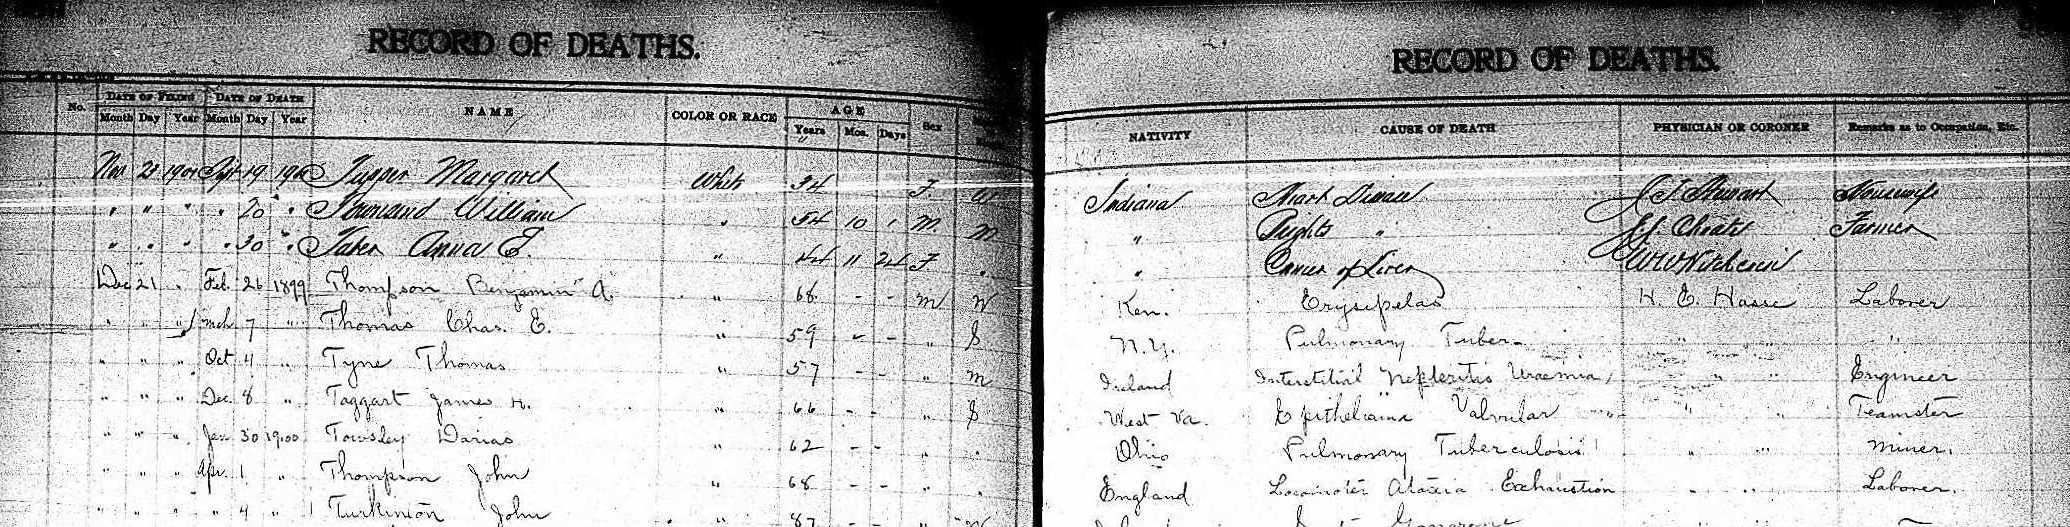 RECORD OF DEATHS.
No. DATE OF FILING DATE OF DEATH NAME COLOR OR RACE AGE Sex
Month Day Year Month Day Year Years Mos. Days
Nov 21 1900 Sept 19 1900 Margaret White 34 F.
" " " " 20 " Townsend William " 54 10 1 M. M
" " " " 30 " Taber Anna E. " 44 11 24 F "
Dec 21 " Feb. 26 1899 Thompson Benjamin A. " 68 - - M W
" " " Mch 7 " Thomas Chas. E. " 59 - - " S
" " " Oct 4 " Tyne Thomas " 57 - - " M
" " " Dec. 8 " Taggart James H. " 66 - - " S
" " " Jan 30 1900 Towsley Darias " 62 - - " "
" " " Apr. 1 " Thompson John " 68 - - " "
" " " " 4 " Turkinton John " 87 - - " W
RECORD OF DEATHS.
NATIVITY CAUSE OF DEATH PHYSICIAN OR CORONER Remarks as to Occupation, Etc.
Indiana Heart Disease J. T. Stewart Housewife
" Brights " Farmer
" Cancer of Liver
Ken. Erysipelas H. E. Hasse Laborer
N.Y. Pulmonary Tuber- " " "
Ireland Interstitial Nephritis Uraemia " " Engineer
West Va. Epithelioma Valvular " " " Teamster
Ohio Pulmonary Tuberculosis " " Miner.
England Locomotor Ataxia Exhaustion " " Laborer.